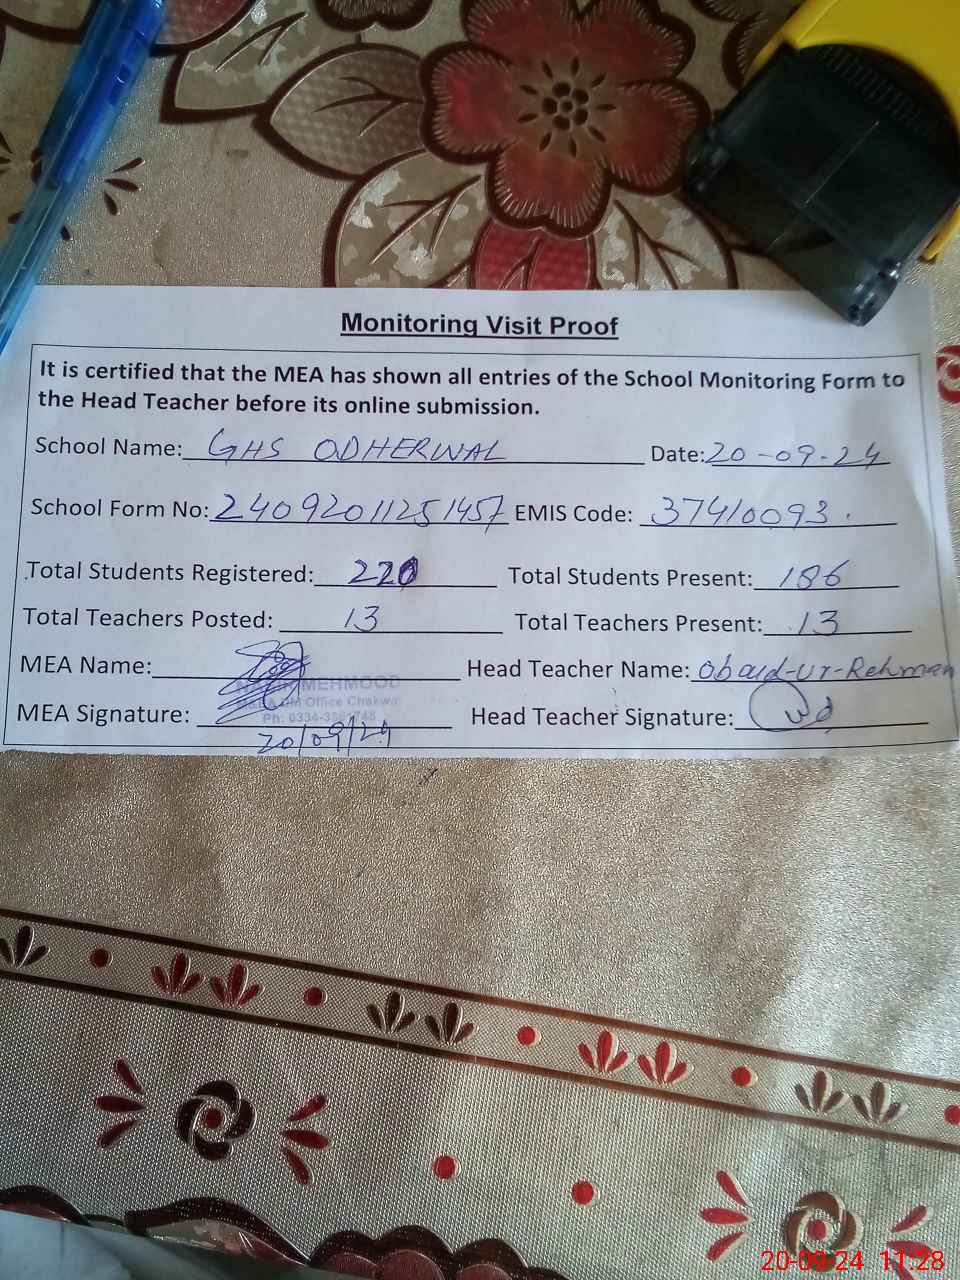 Monitoring Visit Proof
It is certified that the MEA has shown all entries of the School Monitoring Form to
the Head Teacher before its online submission.
School Name: GHS ODHERWAL Date: 20-09-24
School Form No: 24092011251457 EMIS Code: 37410093.
Total Students Registered: 220 Total Students Present: 186
Total Teachers Posted: 13 Total Teachers Present: 13
MEA Name: Head Teacher Name: Obaid-ur-Rehman
MEHMOOD
Office Chakwal
MEA Signature: Head Teacher Signature:
Ph: 0334-
20/09/24
20-09-24 11:28